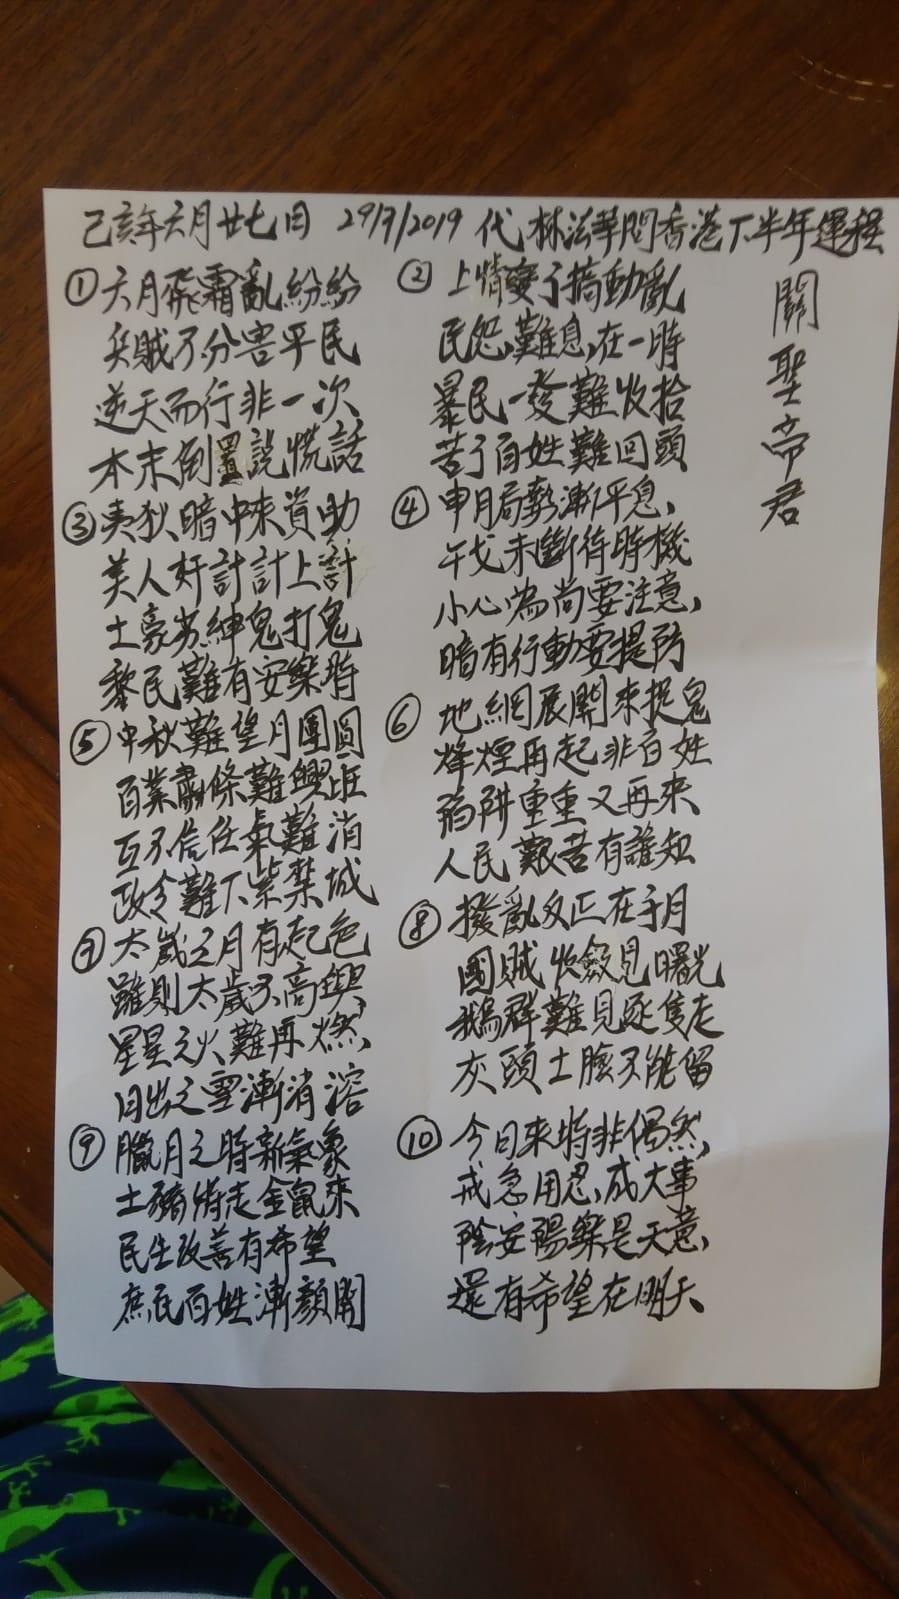 己亥年六月廿七日 29/7/2019 代林法華問香港下半年運程
關聖帝君
① 六月飛霜亂紛紛
兵賊不分害平民
逆天而行非一次
本末倒置說慌話
② 上情變了搞動亂
民怨難息,在一時
暴民一發難收拾
苦了百姓難回頭
③ 夷狄暗中來資助
美人奸計計上計
土豪劣紳鬼打鬼
黎民難有安樂時
④ 申月局勢漸平息、
干戈未斷待時機
小心為尚要注意,
暗有行動要提防
⑤ 中秋難望月團圓
百業肅條難興旺
互不信任氣難消
政令難下紫禁城
⑥ 地網展開來捉鬼
烽煙再起非百姓
陷阱重重又再來
人民艱苦有誰知
⑦ 太歲之月有起色
雖則太歲不高興
星星之火難再燃,
日出之雪漸消溶
⑧ 撥亂反正在子月
國賊收斂見曙光
鵝群難見逐隻走
灰頭土臉不能留
⑨ 臘月之時新氣象
土豬將走金鼠來
民生改善有希望
庶民百姓漸顏開
⑩ 今日來時非偶然,
戒急用忍,成大事
陰安陽樂是天意,
還有希望在明天